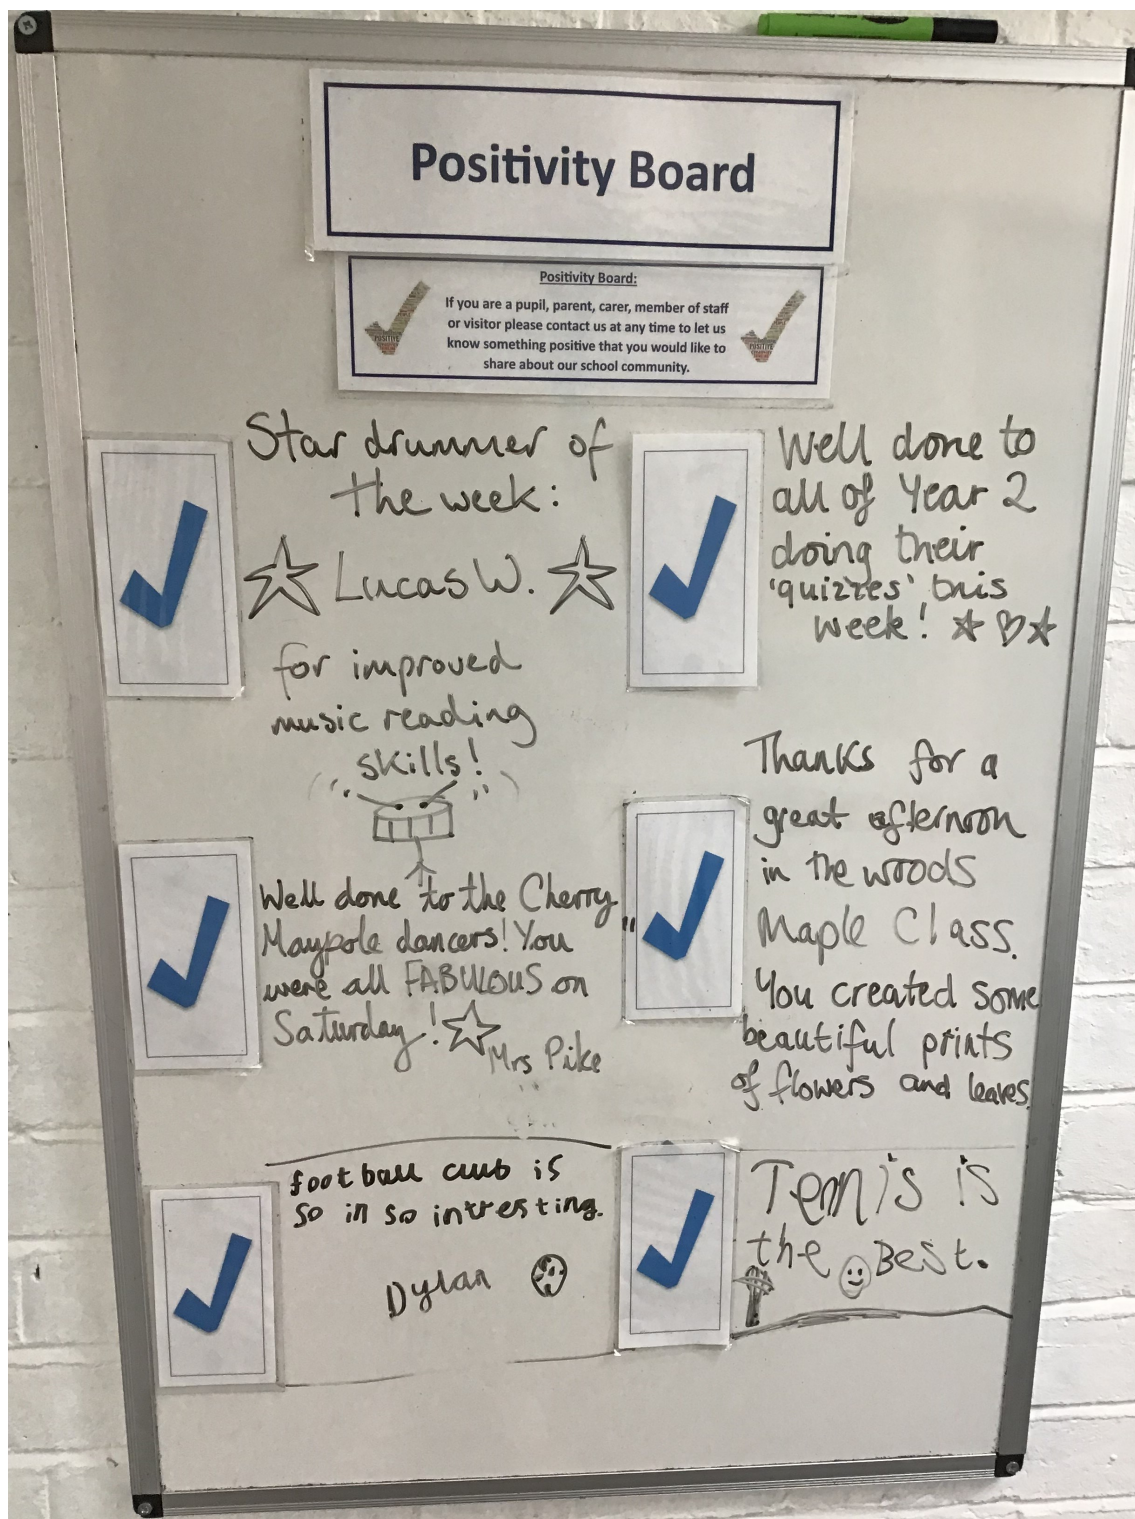 Positivity Board
Positivity Board:
If you are a pupil, parent, carer, member of staff
or visitor please contact us at any time to let us
know something positive that you would like to
share about our school community.
POSITIVE
POSITIVE
Star drummer of
the week:
Lucas W.
for improved
music reading
skills!
Well done to
all of Year 2
doing their
'quizzes' this
week!
Well done to the Cherry
Maypole dancers! You
were all FABULOUS on
Saturday!
Mrs Pike
Thanks for a
great afternoon
in the woods
Maple Class.
You created some
beautiful prints
of flowers and leaves.
football club is
so in so intresting.
Dylan
Tennis is
the Best.